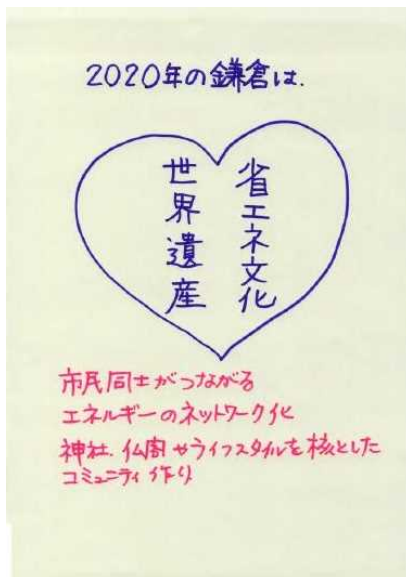 2020年の鎌倉は、
省エネ文化
世界遺産
市民同士がつながる
エネルギーのネットワーク化
神社、仏閣やライフスタイルを核とした
コミュニティ作り